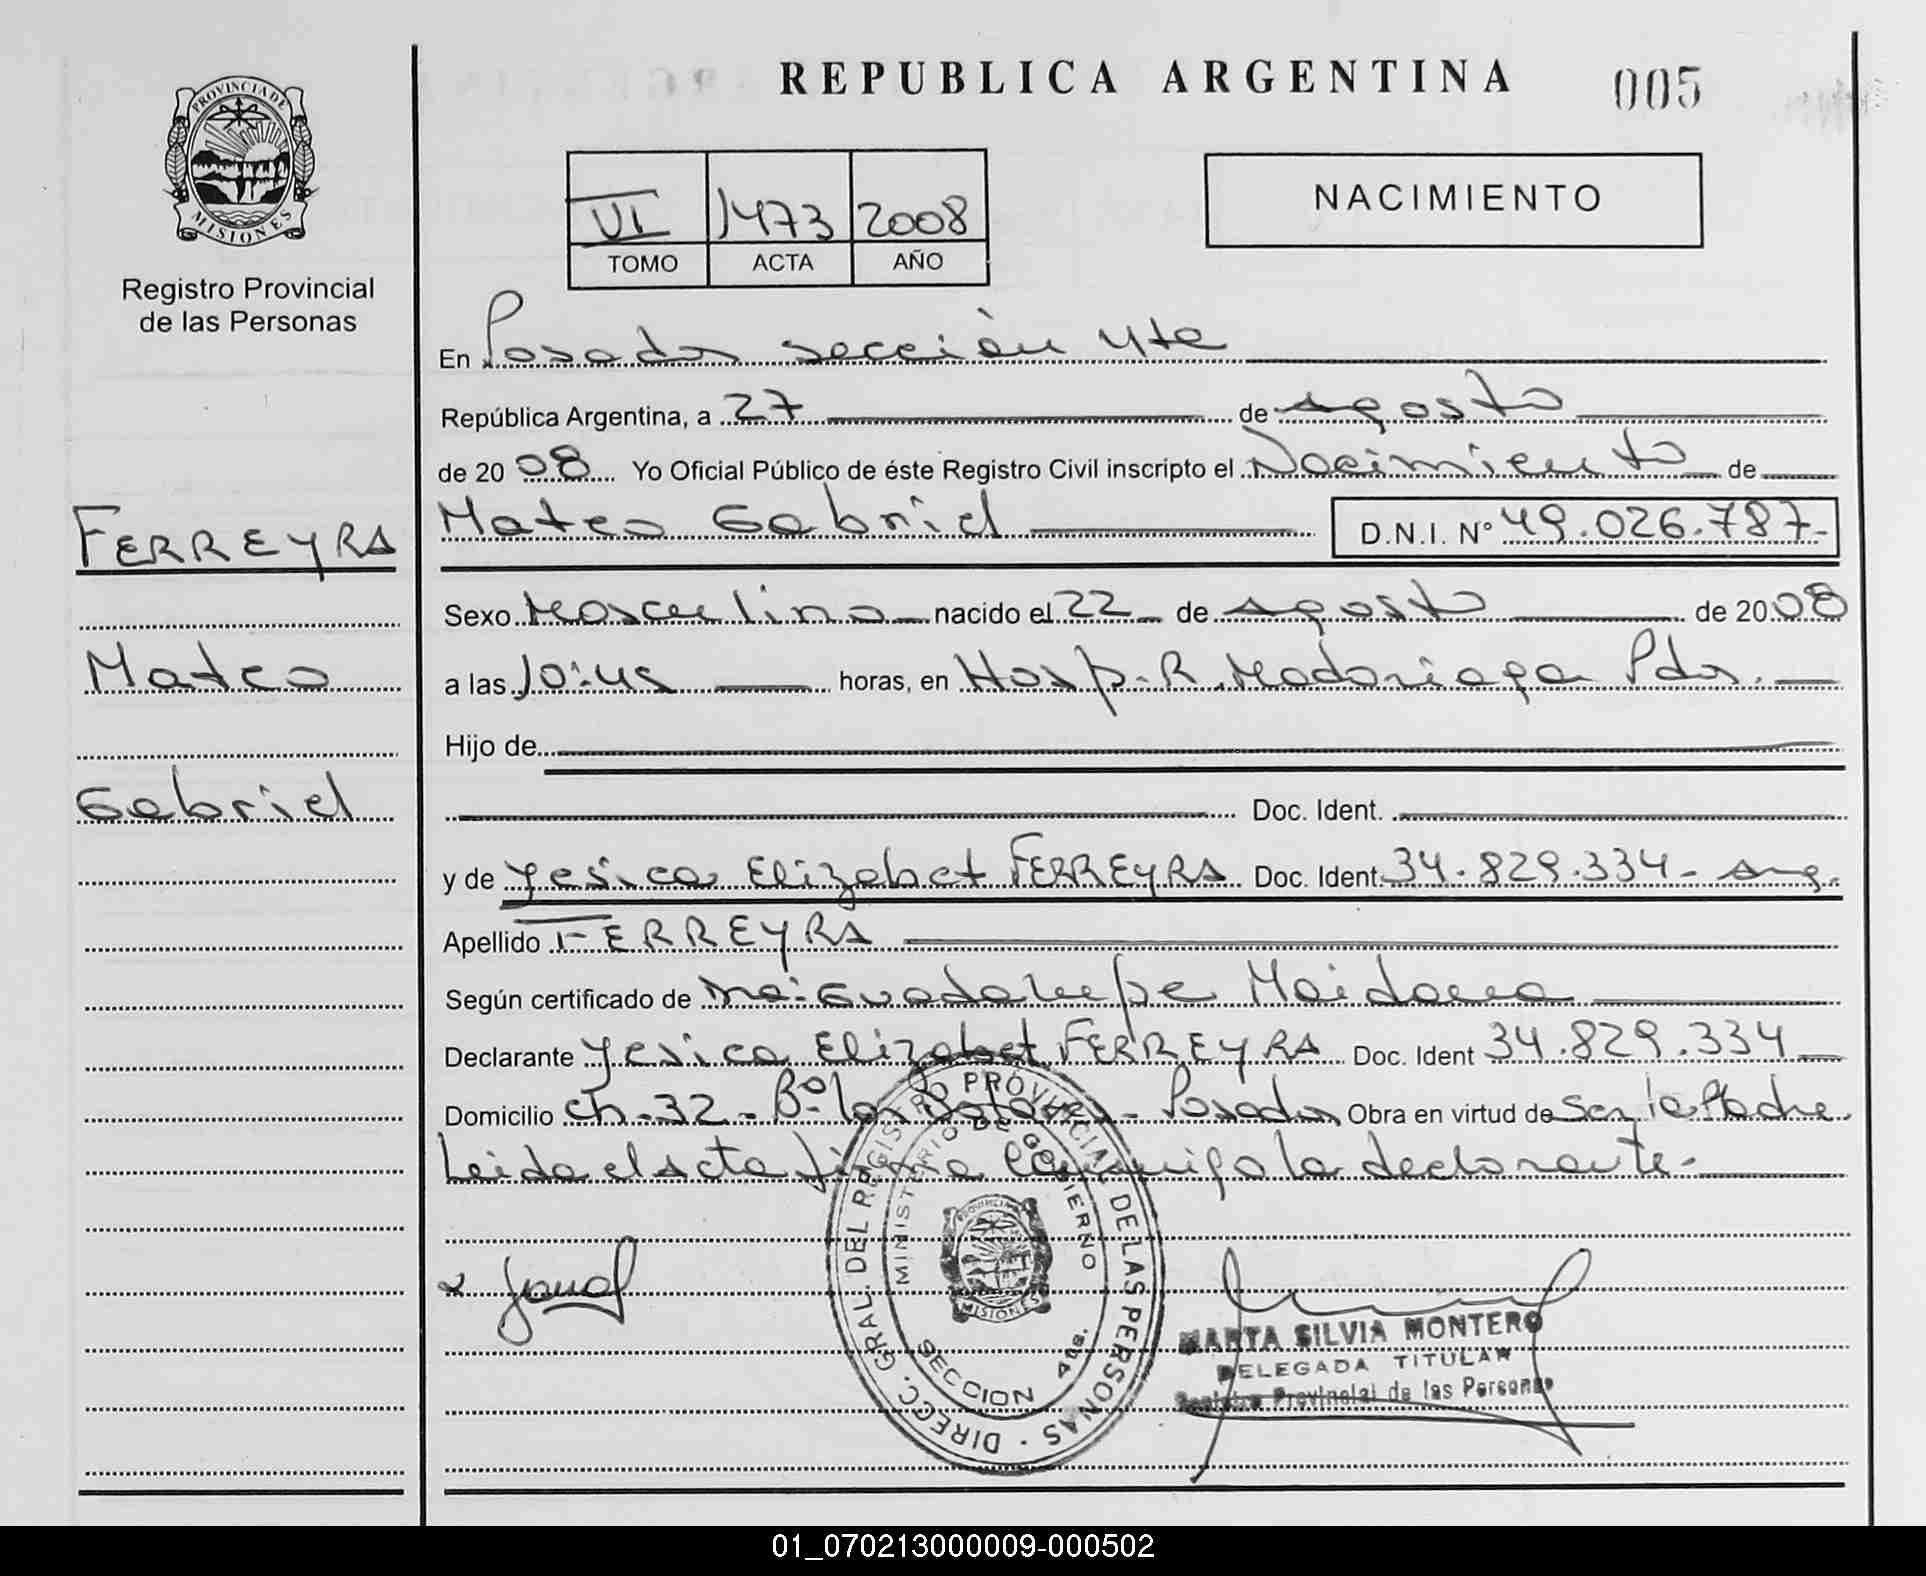 REPUBLICA ARGENTINA
005
PROVINCIA DE
MISIONES
Registro Provincial
de las Personas
VI 1473 2008
TOMO ACTA AÑO
NACIMIENTO
En Posadas sección 4ta
República Argentina, a 27 de agosto
de 2008 Yo Oficial Público de éste Registro Civil inscripto el Nacimiento de
FERREYRA
Mateo
Gabriel
Mateo Gabriel D.N.I. Nº 49.026.787-
Sexo Masculino nacido el 22 de agosto de 2008
a las 10:45 horas, en Hosp. R. Madariaga Pdas.
Hijo de
Doc. Ident.
y de Yesica Elizabet FERREYRA Doc. Ident. 34.829.334- Arg.
Apellido FERREYRA
Según certificado de Ma. Guadalupe Maidana
Declarante Yesica Elizabet FERREYRA Doc. Ident 34.829.334
Domicilio Ch-32-Bº Los - Posadas Obra en virtud de Ser la Madre
Leida el acta firma conmigo la declarante-
DIRECC. GRAL. DEL REGISTRO PROVINCIAL DE LAS PERSONAS
MINISTERIO DE GOBIERNO
MISIONES
SECCION 4ta.
MARTA SILVIA MONTERO
DELEGADA TITULAR
Registro Provincial de las Personas
01_070213000009-000502